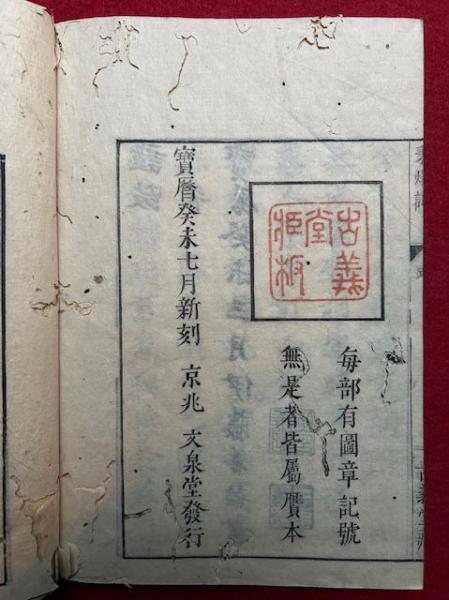 古義
堂
藏板
每部有圖章記號
無是者皆屬贋本
寶曆癸未七月新刻 京兆 文泉堂發行